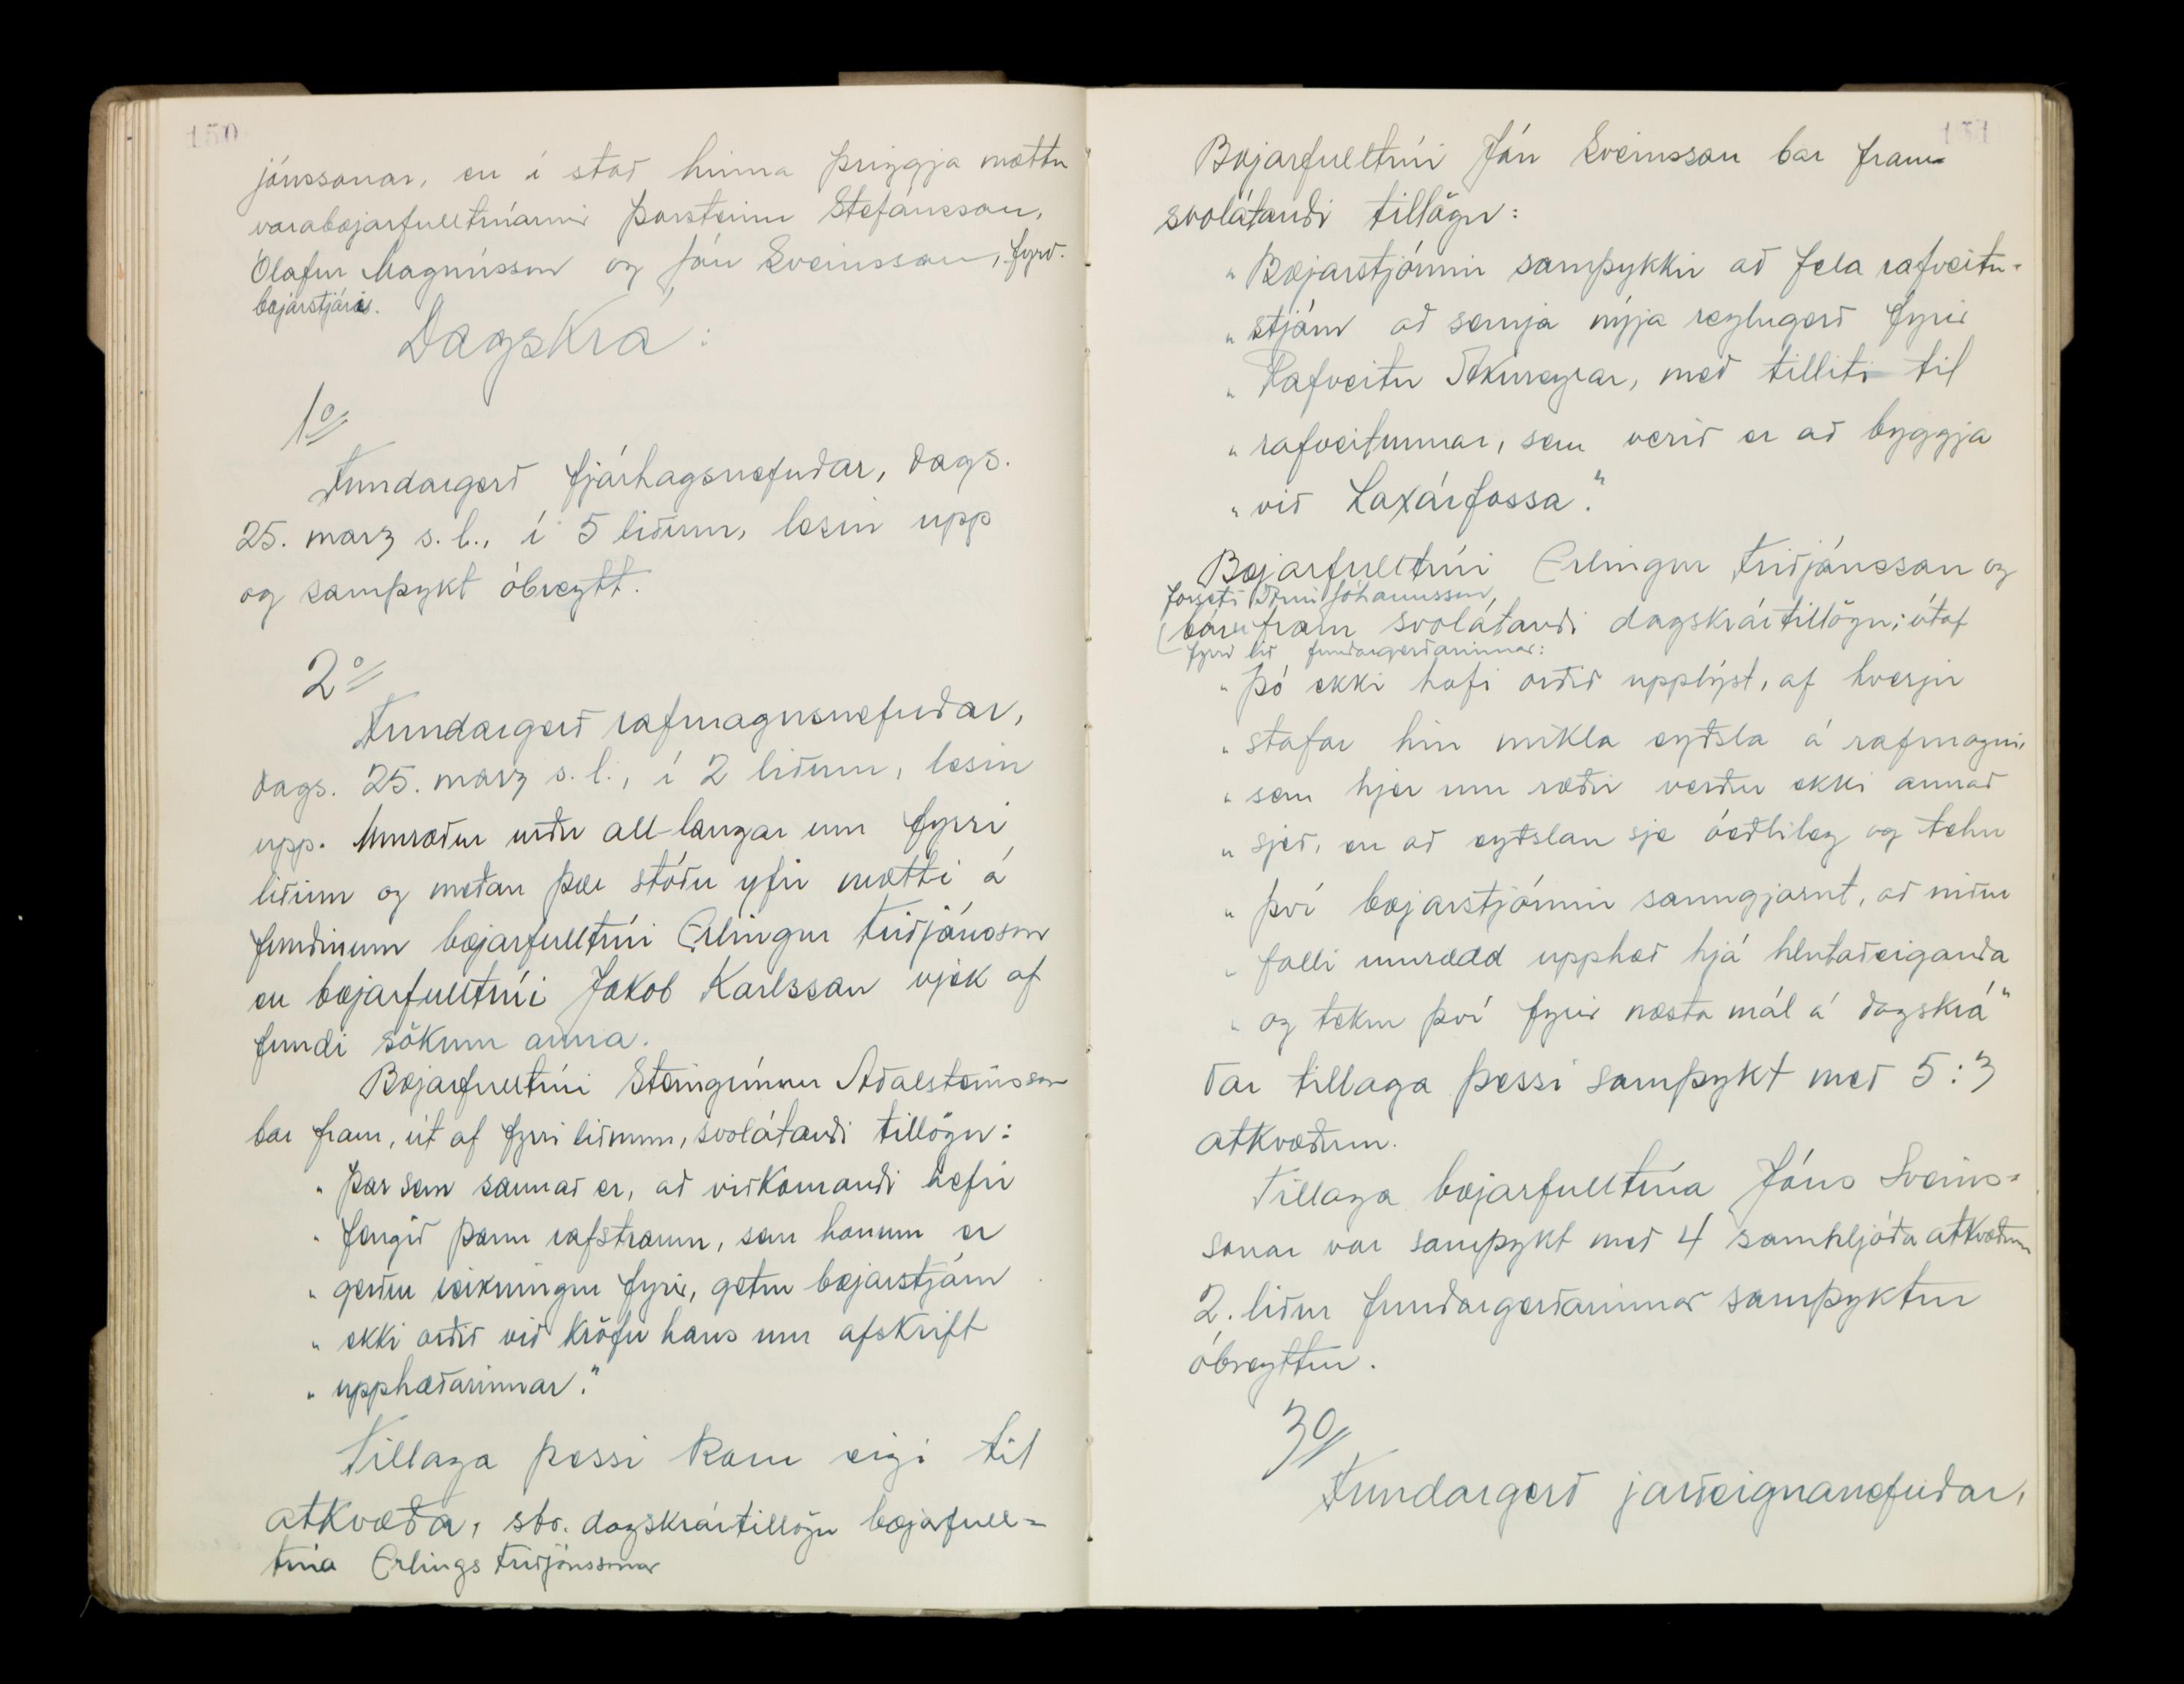 150
jónssonar, en í stað hinna þriggja mættu
varabæjarfulltrúarnir Þorsteinn Stefánsson,
Ólafur Magnússon og Jón Sveinsson, fyrv.
bæjarstjóri.
Dagskrá:
1º
Fundargerð fjárhagsnefndar, dags.
25. marz s.l., í 5 liðum, lesin upp
og samþykt óbreytt.
2º
Fundargerð rafmagnsnefndar,
dags. 25. marz s.l., í 2 liðum, lesin
upp. Umræður urðu all-langar um fyrri
liðinn og meðan þær stóðu yfir mætti á
fundinum bæjarfulltrúi Erlingur Friðjónsson
en bæjarfulltrúi Jakob Karlsson vjek af
fundi sökum anna.
Bæjarfulltrúi Steingrímur Aðalsteinsson
bar fram, út af fyrri liðnum, svolátandi tillögu:
"Þar sem sannað er, að viðkomandi hefir
" fengið þann rafstraum, sem honum er
" gerður reikningur fyrir, getur bæjarstjórn
" ekki orðið við kröfu hans um afskrift
" upphæðarinnar."
Tillaga þessi kom eigi til
atkvæða, sbr. dagskrártillögu bæjarfull=
trúa Erlings Friðjónssonar
151
Bæjarfulltrúi Jón Sveinsson bar fram
svolátandi tillögu:
" Bæjarstjórnin samþykkir að fela rafveitu-
" stjórn að semja nýja reglugerð fyrir
" Rafveitu Akureyrar, með tilliti til
" rafveitunnar, sem verið er að byggja
" við Laxárfossa."
Bæjarfulltrúi Erlingur Friðjónsson og
forseti Árni Jóhannsson,
báru fram svolátandi dagskrártillögu; útaf
fyrri lið fundargerðarinnar:
" Þó ekki hafi orðið upplýst, af hverju
" stafar hin mikla eyðsla á rafmagni,
" sem hjer um ræðir verður ekki annað
" sjeð, en að eyðslan sje óeðlileg og telur
" því bæjarstjórnin sanngjarnt, að niður
" falli umrædd upphæð hjá hlutaðeiganda
" og tekur því fyrir næsta mál á dagskrá"
Var tillaga þessi samþykt með 5:3
atkvæðum.
Tillaga bæjarfulltrúa Jóns Sveins=
sonar var samþykt með 4 samhljóða atkvæðum
2. liður fundargerðarinnar samþyktur
óbreyttur.
3º
Fundargerð jarðeignanefndar,